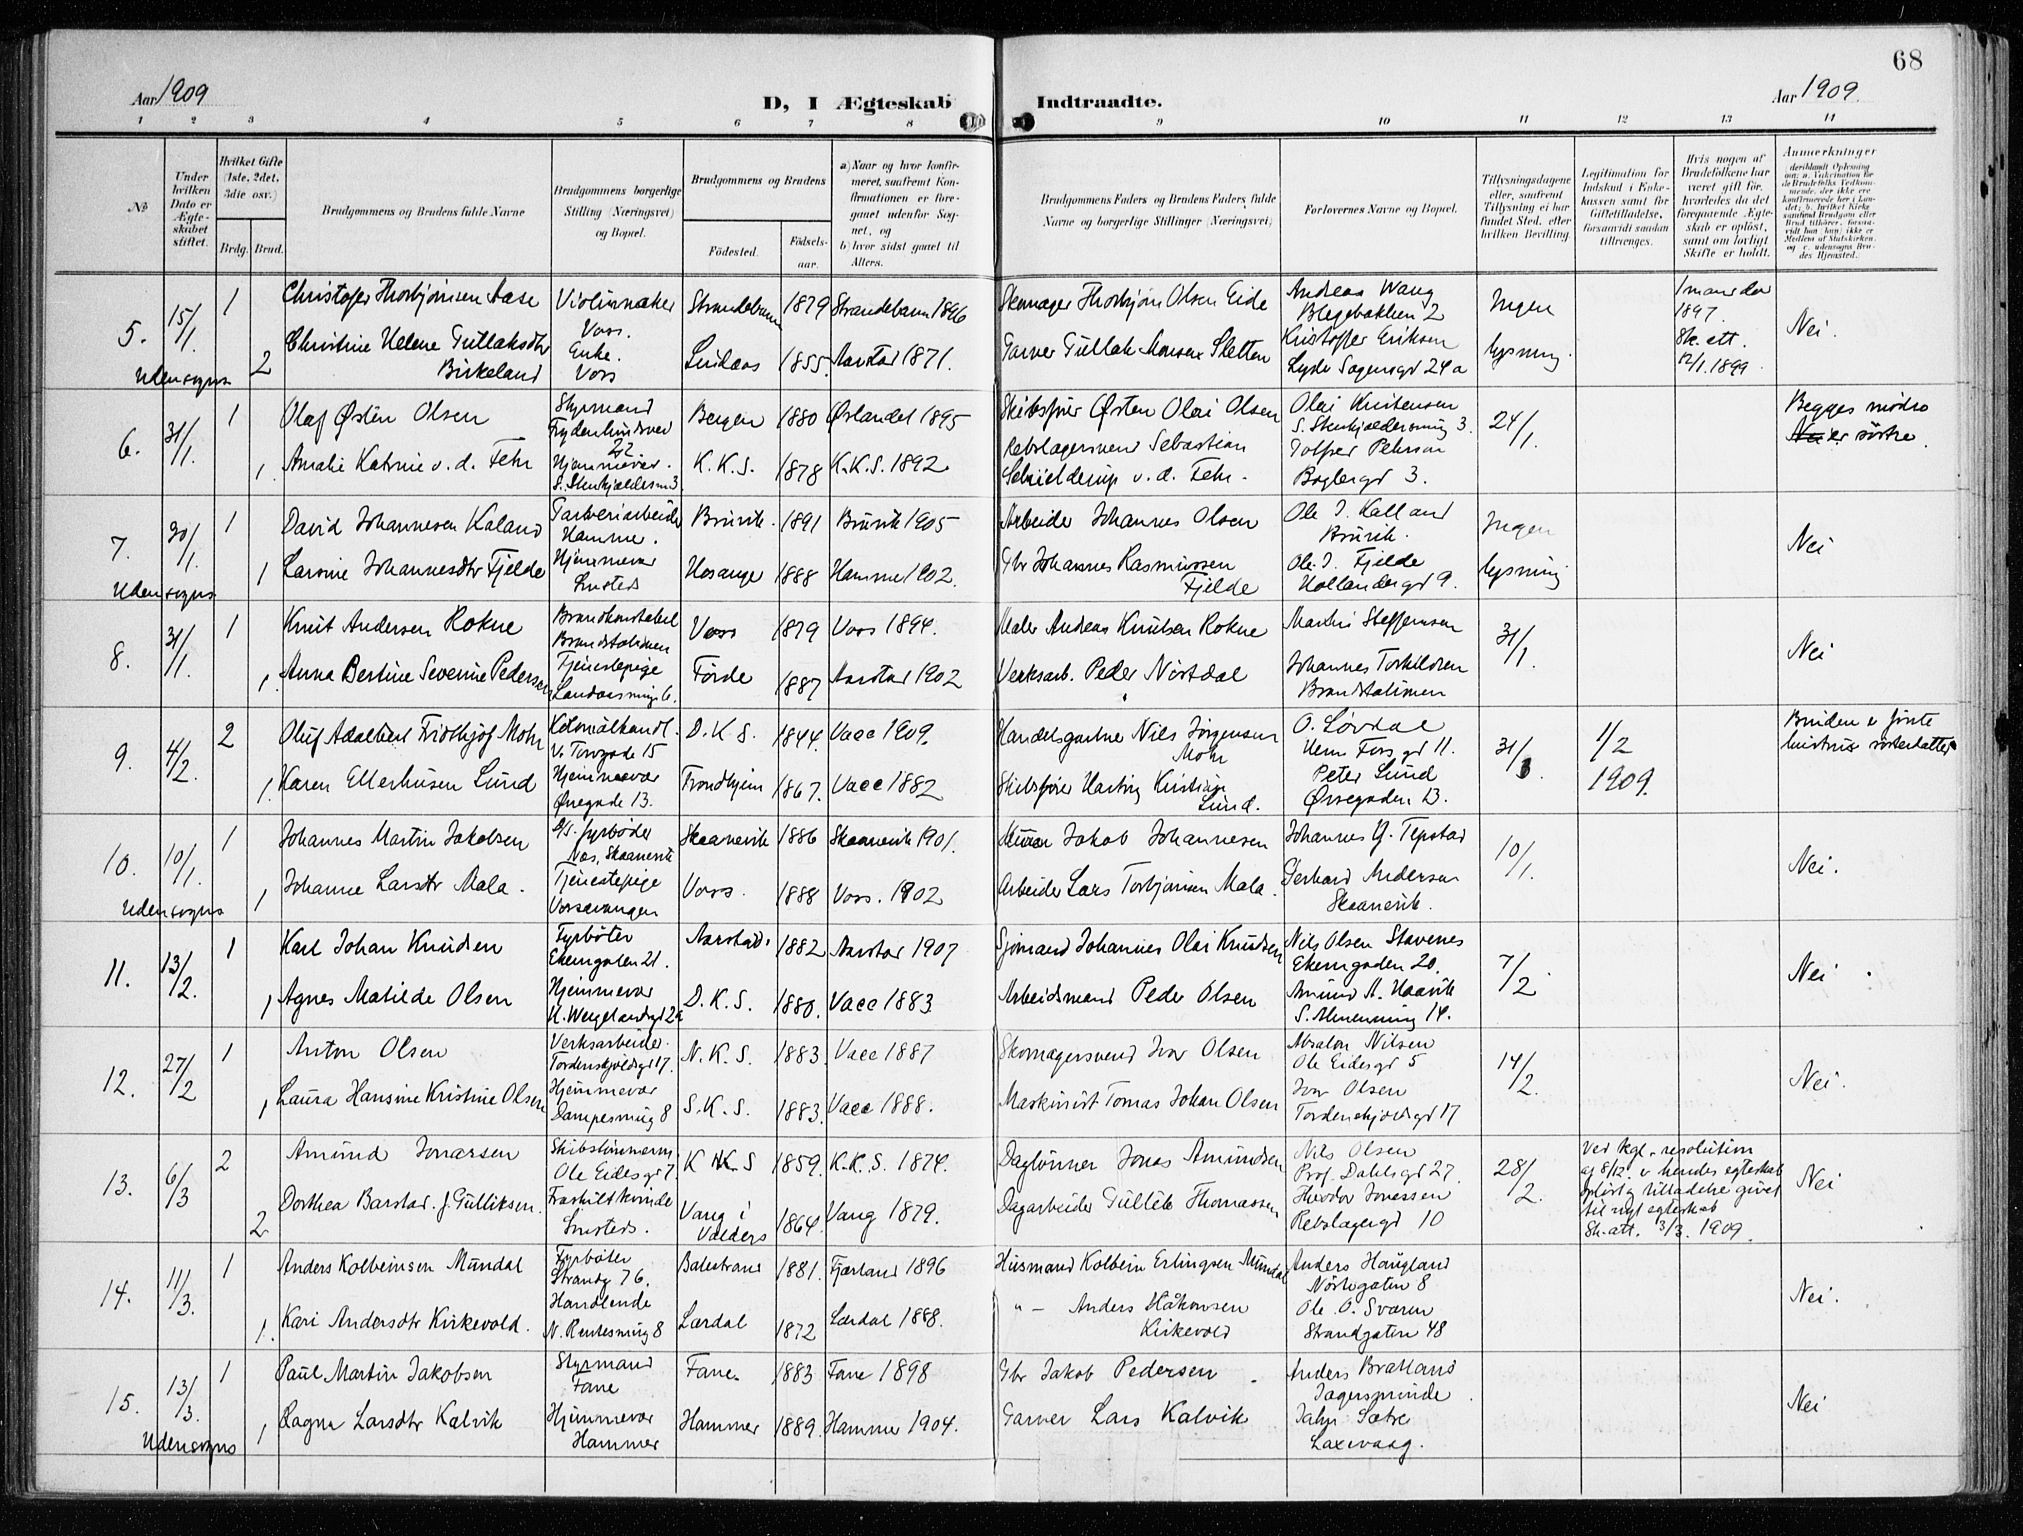 68
Aar 1909
D, I Ægteskab Indtraadte.
Aar 1909.
1 2 3 4 5 6 7 8 9 10 11 12 13 14
No
Under hvilken Dato er Ægteskabet stiftet.
Hvilket Gifte (1ste, 2det, 3die osv.)
Brdg. Brud.
Brudgommens og Brudens fulde Navne
Brudgommens borgerlige Stilling (Næringsvei) og Bopæl.
Brudgommens og Brudens
Födested.
Födselsaar.
a) Naar og hvor konfirmeret, saafremt Konfirmationen er foregaaet udenfor Sognet, og
b) hvor sidst gaaet til Alters.
Brudgommens Faders og Brudens Faders fulde Navne og borgerlige Stillinger (Næringsvei)
Forlovernes Navne og Bopæl.
Tillysningsdagene eller, saafremt Tillysning ei har fundet Sted, efter hvilken Bevilling
Legitimation for Indskud i Enkekassen samt for Giftetilladelse, forsaavidt saadan tiltrænges.
Hvis nogen af Brudefolkene har været gift för, hvorledes da det foregaaende Ægteskab er oplöst, samt om lovligt Skifte er holdt.
Anmerkninger
5. 15/1. 1 Christofer Thorbjörnsen Aase Violinmaker Voss. Strandebarm 1879 Strandebarm 1896 Thorbjörn Olsen Eide Andreas Waag Blegebakken 2 Ingen
Udensogns 2 Christine Helene Gullaksdtr Birkeland Enke. Voss Lindaas 1855. Aarstad 1871. Garver Gullak Monsen Sletten Kristoffer Eriksen Lyder Sagensgd 24a lysning. 1897. Sk. att. 12/1. 1899 Nei.
6. 31/1. 1 Olaf Østen Olsen Styrmand 22 Bergen 1880 1895 Skibsförer Østen Olai Olsen Olai Kristensen S. Stenkjeldersmug 3. 24/1. Begges mødre er søstre.
1. Amalie Katrine v. d. Fehr Hjemmevær. S. Stenkjeldersm 3. K. K. S. 1878 K. K. S. 1892. Rebslagersvend Sebastian Schielderup v. d. Fehr. Petersen Baglergd 3.
7. 30/1. 1 David Johannesen Kaland Garveriarbeider Hammer. Bruvik. 1891 Bruvik 1905 Arbeider Johannes Olsen Ole J. Kalland Bruvik. Ingen Nei
Udensogns 1 Larsine Johannesdtr Fjelde Hjemmevær Smsteds Hosanger 1888 Hammer 1902. Gbr Johannes Rasmussen Fjelde Ole J. Fjelde Hollændergd 9. lysning
8. 31/1. 1 Knut Andersen Rokne Brandkonstabel Brandstationen Voss 1879 Voss 1894. Maler Andreas Knutsen Rokne Martin Steffensen 31/1. Nei
1. Anna Bertine Severine Pedersen Tjenestepige Landaasmug 6. Førde 1887 Aarstad 1902 Verksarb. Peder Nistdal Johannes Torkildsen Brandstationen
9. 4/2. 2 Oluf Adalbert Fridthjof Mohr Kolonialhandl. V. Torvgade 15 D. K. S. 1844. Vacc 1909. Handelsgartner Nils Jörgensen Mohr O. Løvdal Herm Fossgd 11. 31/1. 1/2 1909. Bruden er første hustrus søsterdatter
1. Karen Ellerhusen Lund Hjemmevær Øvregade 13. Trondhjem 1867. Vacc 1882 Skibsfører Hartvig Kristian Lund. Peter Lund Øvregaden 13.
10. 10/1. 1 Johannes Martin Jakobsen fyrbøder Næs, Skaanevik Skaanevik 1886 Skaanevik 1901. Jakob Johannesen Johannes 10/1. Nei.
Udensogns 1 Johanne Larsdtr Mala. Tjenestepige Vossevangen Voss. 1888 Voss. 1902 Arbeider Lars Torbjörnsen Mala. Gerhard Andersen Skaanevik.
11. 13/2. 1 Karl Johan Knudsen Fyrbøter Ekerngaten 21. Aarstad. 1882 Aarstad 1907 Sjömand Johannes Olai Knudsen Nils Olsen Stavenes Ekerngaden 20. 7/2. Nei
1 Agnes Matilde Olsen Hjemmevær H. Wergelandsgd 2a D. K. S. 1880. Vacc 1883 Arbeidsmand Peder Olsen Amund A. Haavik S. Almenning 14.
12. 27/2 1 Anton Olsen Verksarbeider. Tordenskjoldsgd 17. N. K. S. 1883. Vacc 1887 Skomagersvend Ivar Olsen Absalon Nilsen Ole Eidesgd 5 14/2. Nei.
1 Laura Hansine Kristine Olsen Hjemmevær Dampesmug 8 S. K. S. 1883. Vacc 1888. Maskinist Tomas Johan Olsen Ivar Olsen Tordenskjoldsgd 17
13. 6/3 2 Amund Jonassen Skibstömmerm Ole Eidesgd 7. K K. S 1859. K. K. S. 1874. Daglönner Jonas Amundsen Nils Olsen Prof. Dahlsgd 27. 28/2. Ved kgl. resolution af 8/12. er hendes egteskab oplöst og tilladelse givet til nyt egteskab Sk. att. 3/3. 1909. Nei
2 Dorthea Barstad f. Gulliksen. Fraskilt kvinde Smsteds. Vang i Valders 1864. Vang 1879. Dagarbeider Gullik Thomassen Theodor Jonassen Rebslagergd 10
14. 11/3. 1 Anders Kolbeinsen Mundal Fyrbøter Strandg 76. Balestrand 1881. Fjærland 1896 Husmand Kolbein Erlingsen Mundal Anders Haugland Nöstegaten 8 Nei.
1. Kari Andersdtr Kirkevold. Handlende N. Rentesmug 8 Lærdal 1872 Lærdal 1888. " — Anders Håkonsen Kirkevold Ole O. Svaren Strandgaten 48
15. 13/3. 1 Paul Martin Jakobsen Styrmand Fane Fane. 1883 Fane 1898 Gbr Jakob Pedersen Anders Bratland Nei
Udensogns 1 Ragna Larsdtr Kalvik Hjemmevær Hammer Hammer 1889. Hammer 1904. Garver Lars Kalvik Sætre Laxevaag.